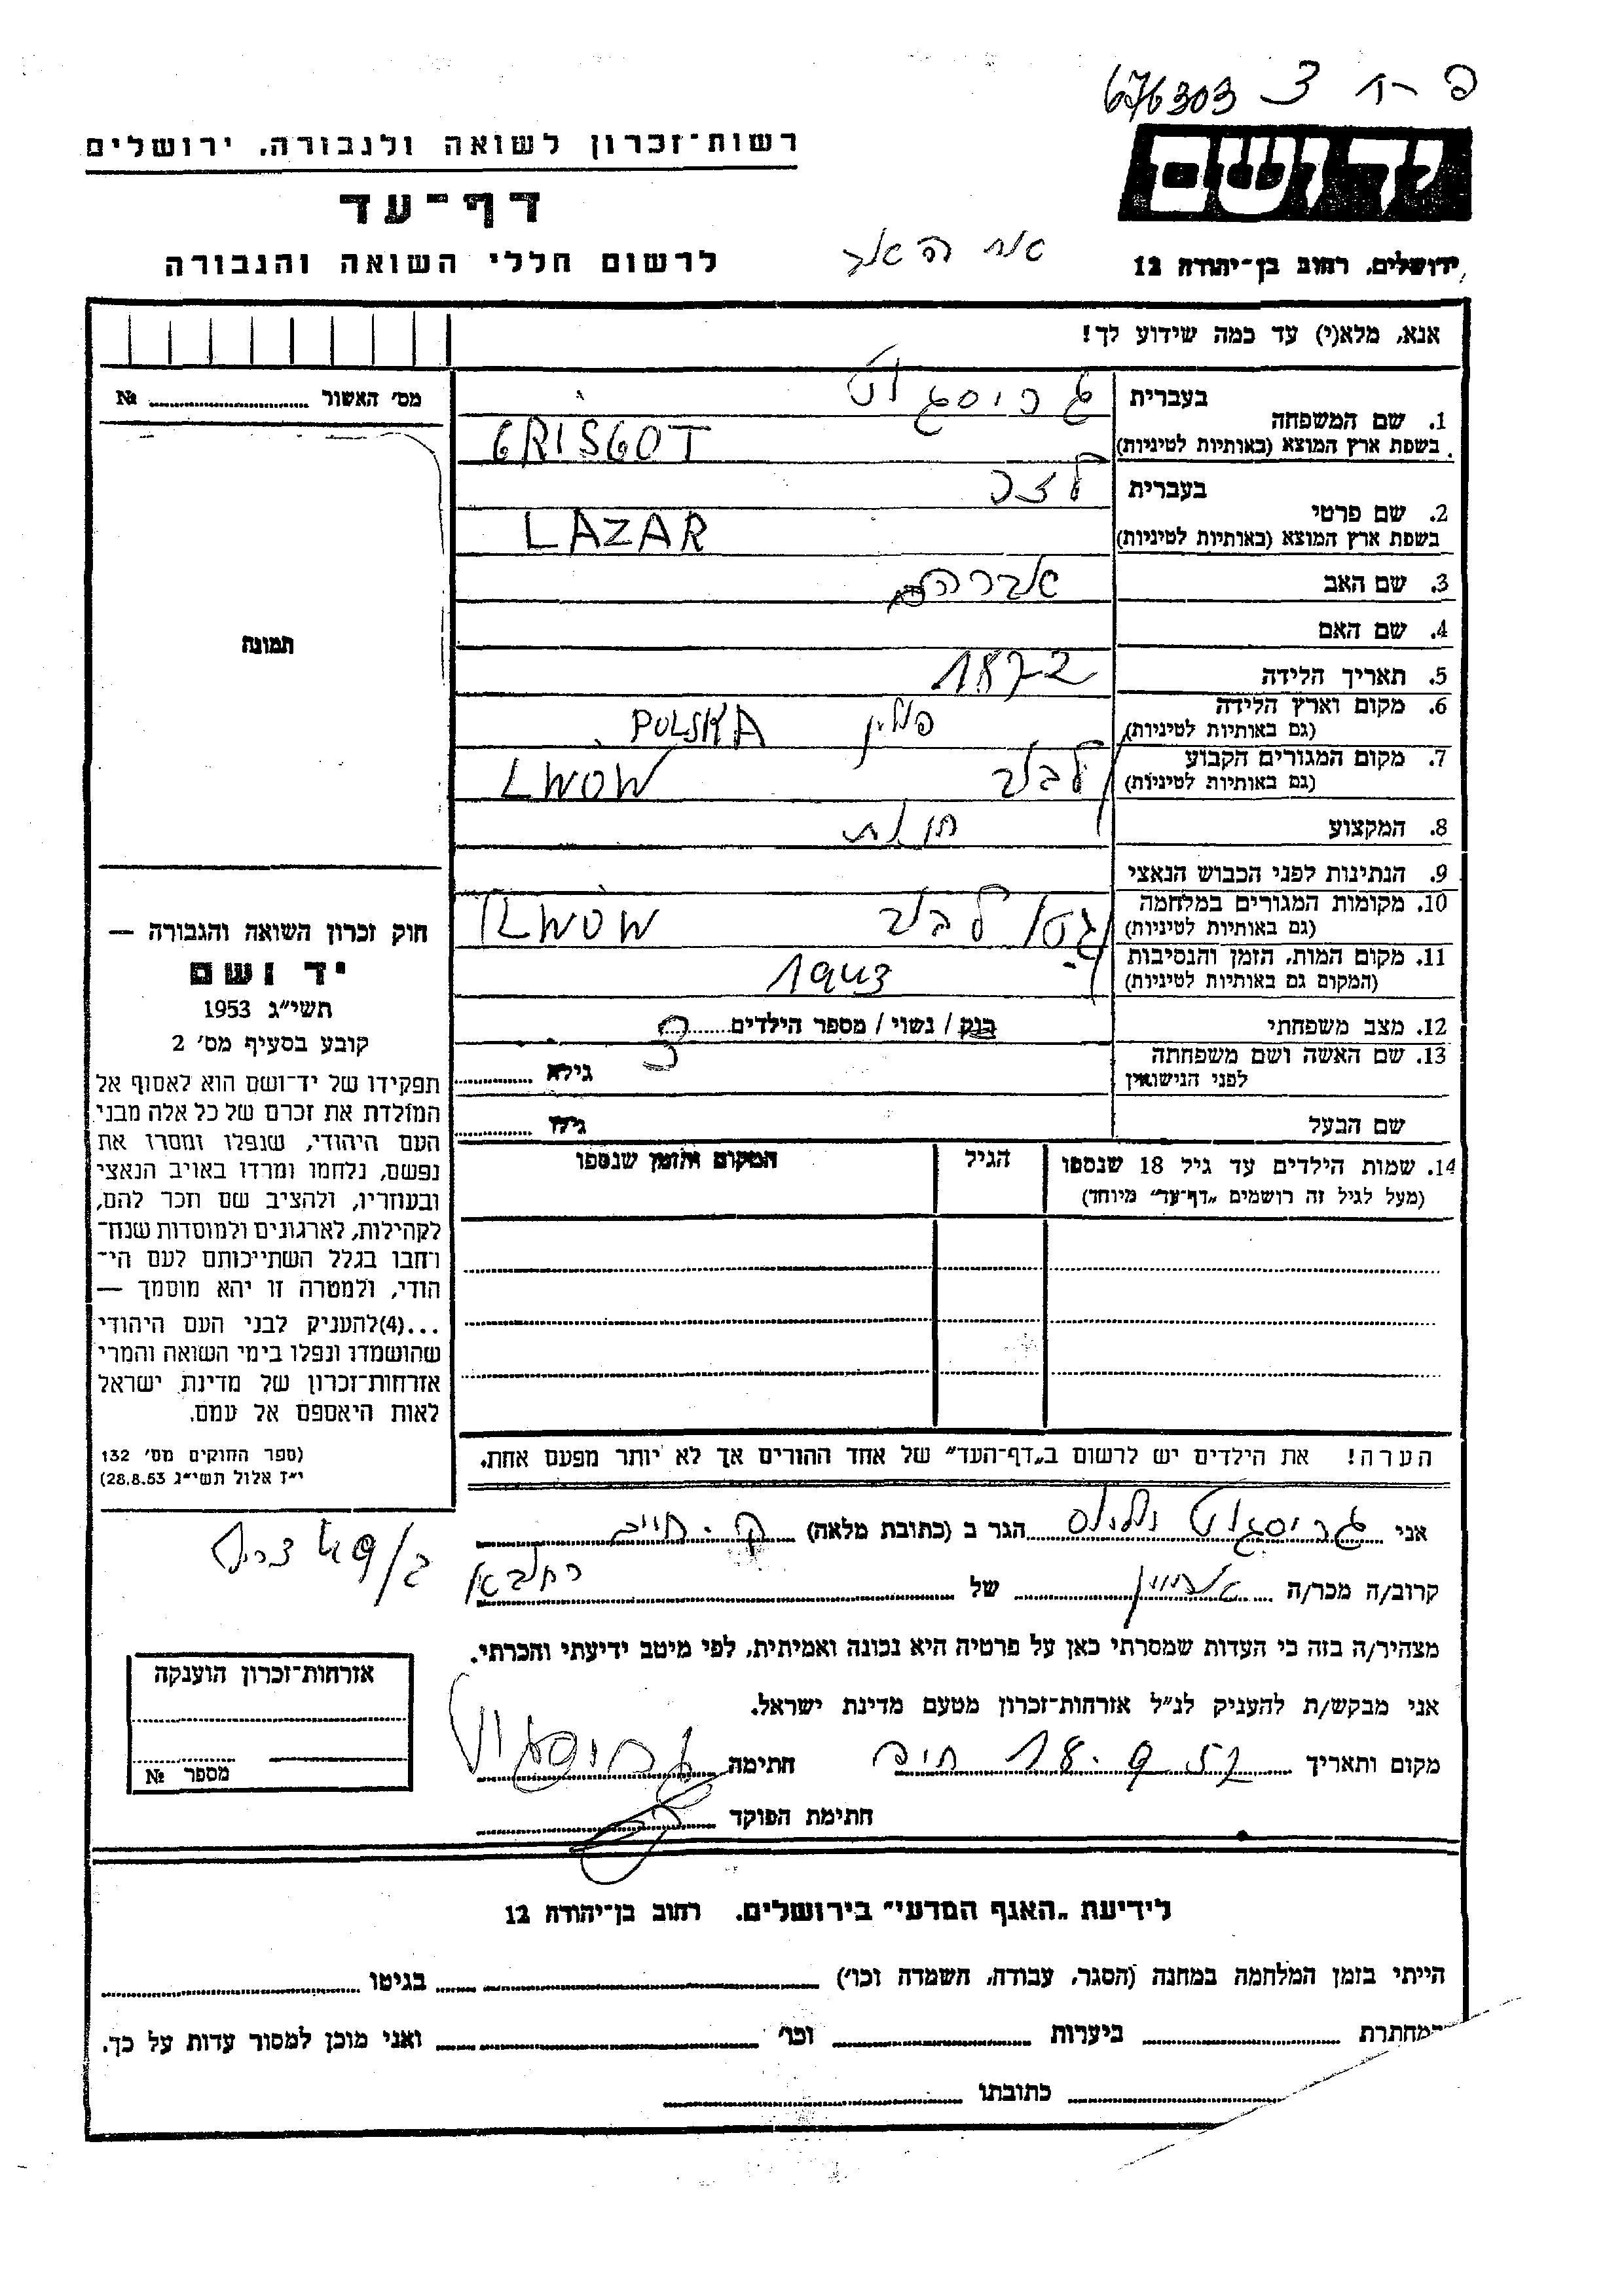 676303
רשות־זכרון לשואה ולגבורה, ירושלים
יד ושם
דף־עד
לרשום חללי השואה והגבורה
ירושלים, רחוב בן־יהודה 12
אנא, מלא(י) עד כמה שידוע לך!
מס׳ האשור № ........
1. שם המשפחה
בעברית גריסגוט
בשפת ארץ המוצא (באותיות לטיניות) GRISGOT
2. שם פרטי
בעברית לזר
בשפת ארץ המוצא (באותיות לטיניות) LAZAR
3. שם האב אברהם
4. שם האם
5. תאריך הלידה 1872
6. מקום וארץ הלידה
(גם באותיות לטיניות) פולין POLSKA
7. מקום המגורים הקבוע
(גם באותיות לטיניות) לבוב LWOW
8. המקצוע
9. הנתינות לפני הכבוש הנאצי
10. מקומות המגורים במלחמה
(גם באותיות לטיניות) גטו לבוב LWOW
11. מקום המות, הזמן והנסיבות
(המקום גם באותיות לטיניות) 1943
12. מצב משפחתי רווק / נשוי / מספר הילדים
13. שם האשה ושם משפחתה
לפני הנישואין גילא
שם הבעל גילו
14. שמות הילדים עד גיל 18 שנספו הגיל המקום והזמן שנספו
(מעל לגיל זה רושמים „דף־עד״ מיוחד)
הערה! את הילדים יש לרשום ב„דף־העד״ של אחד ההורים אך לא יותר מפעם אחת.
תמונה
חוק זכרון השואה והגבורה —
יד ושם
תשי״ג 1953
קובע בסעיף מס׳ 2
תפקידו של יד־ושם הוא לאסוף אל
המולדת את זכרם של כל אלה מבני
העם היהודי, שנפלו ומסרו את
נפשם, נלחמו ומרדו באויב הנאצי
ובעוזריו, ולהציב שם וזכר להם,
לקהילות, לארגונים ולמוסדות שנח־
רבו בגלל השתייכותם לעם הי־
הודי, ולמטרה זו יהא מוסמך —
...(4)להעניק לבני העם היהודי
שהושמדו ונפלו בימי השואה והמרי
אזרחות־זכרון של מדינת ישראל
לאות היאספם אל עמם.
(ספר החוקים מס׳ 132
י״ז אלול תשי״ג 28.8.53)
אני גריסגוט הגר ב (כתובת מלאה) ק. חיים
קרוב/ה מכר/ה של
מצהיר/ה בזה כי העדות שמסרתי כאן על פרטיה היא נכונה ואמיתית, לפי מיטב ידיעתי והכרתי.
אני מבקש/ת להעניק לנ״ל אזרחות־זכרון מטעם מדינת ישראל.
מקום ותאריך 18.9.57 חתימה גריסגוט
חתימת הפוקד
אזרחות־זכרון הוענקה
מספר №
לידיעת „האגף המדעי״ בירושלים, רחוב בן־יהודה 12
הייתי בזמן המלחמה במחנה (הסגר, עבודה, השמדה וכו׳) בגיטו
במחתרת ביערות וכו׳ ואני מוכן למסור עדות על כך.
כתובתו